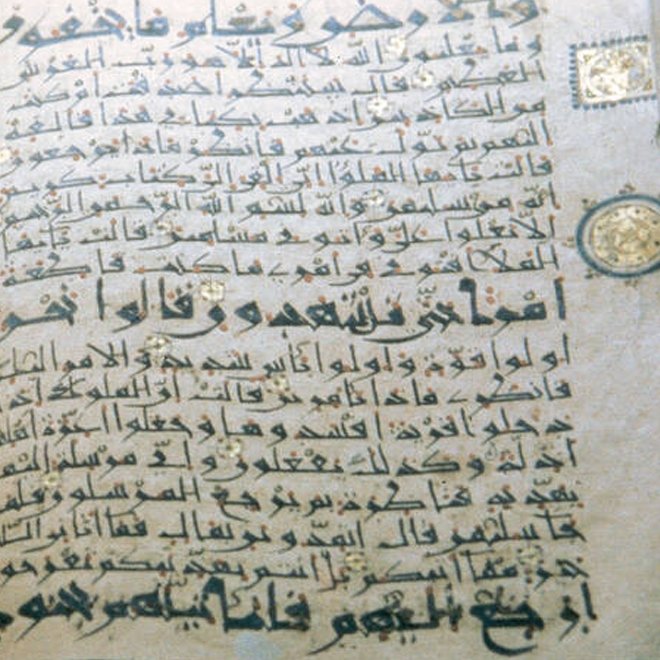 والارض ويعلم ما يخفون
وما يعلنون الله لا اله الا هو رب العرش
العظيم قال سننظر اصدقت ام كنت
من الكاذبين اذهب بكتابي هذا فالقه
اليهم ثم تول عنهم فانظر ماذا يرجعون
قالت يايها الملؤا اني القي الي كتاب كريم
انه من سليمن وانه بسم الله الرحمن الرحيم
الا تعلوا علي واتوني مسلمين قالت يايها
الملؤا افتوني في امري ما كنت قاطعة
امرا حتى تشهدون قالوا نحن
اولوا قوة واولوا باس شديد والامر اليك
فانظري ماذا تامرين قالت ان الملوك اذا
دخلوا قرية افسدوها وجعلوا اعزة اهلها
اذلة وكذلك يفعلون واني مرسلة اليهم
بهدية فناظرة بم يرجع المرسلون فلما
جا سليمن قال اتمدونن بمال فما اتين الله
خير مما اتيكم بل انتم بهديتكم تفرحون
ارجع اليهم فلناتينهم بجنود